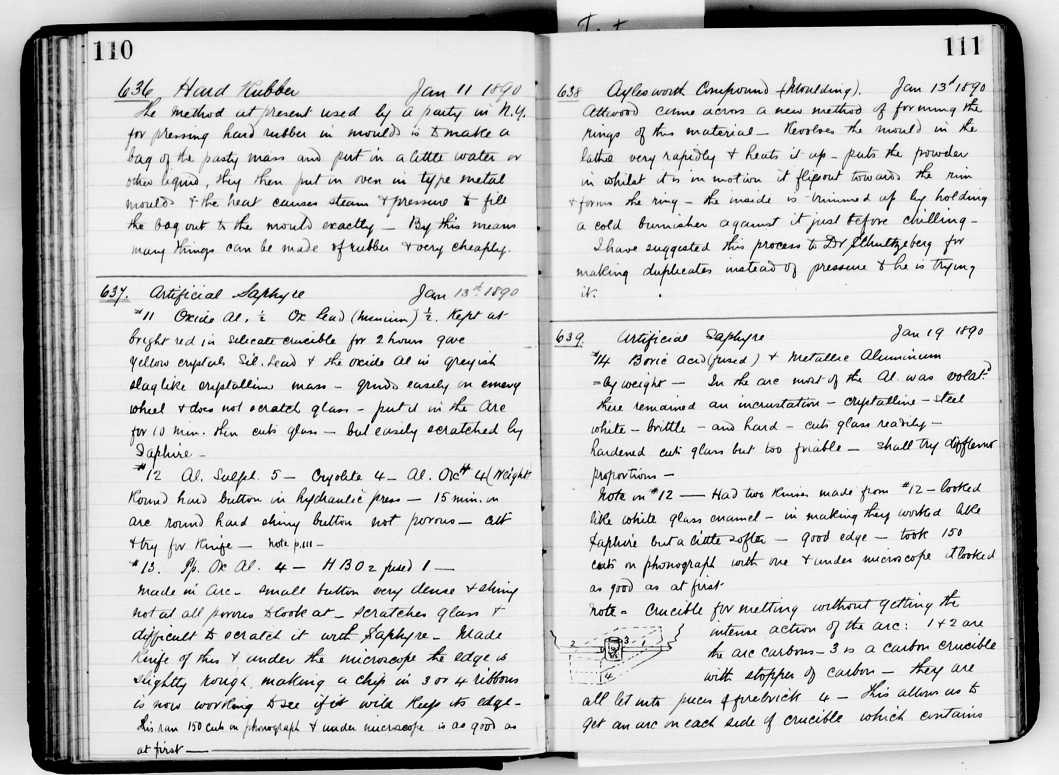 110
636 Hard Rubber Jan 11 1890
The method at present used by a party in N.Y.
for pressing hard rubber in moulds is to make a
bag of the pasty mass and put in a little water or
other liquid, they then put in oven in type metal
moulds & the heat causes steam & pressure to fill
the bag out to the mould exactly — By this means
many things can be made of rubber & very cheaply.
637. Artificial Saphyre Jan 13th 1890
#11 Oxide Al. ½ Ox Lead (minium) ½. Kept at
bright red in silicate crucible for 2 hours gave
yellow crystals Sil. Lead & the oxide Al in greyish
slaglike crystalline mass — grinds easily on emery
wheel & does not scratch glass — put it in the Arc
for 10 min. then cuts glass — but easily scratched by
Saphire —
#12 Al. Sulph. 5 — Cryolite 4 — Al. Ox 4 (Weight
Round hard button in hydraulic press — 15 min. in
arc round hard shiny button not porous — cut
& try for Knife — Note p.111 —
#13. Pp. Ox Al. 4 — HBO2 fused 1 —
Made in Arc — small button very dense & shiny
not at all porous to look at — scratches glass &
difficult to scratch it with Saphyre — Made
Knife of this & under the microscope the edge is
slightly rough, making a chip in 3 or 4 ribbons
is now working to see if it will keep its edge —
This ran 150 cuts on phonograph & under microscope is as good as
at first —
111
638 Aylesworth Compound (Moulding). Jan 13th 1890
Attwood came across a new method of forming the
rings of this material — Revolves the mould in the
lathe very rapidly & heats it up — puts the powder
in whilst it is in motion it flies out towards the rim
& forms the ring — the inside is trimmed up by holding
a cold burnisher against it just before chilling —
I have suggested this process to Dr Schultzeberg for
making duplicates instead of pressure & he is trying
it.
639. Artificial Saphyre Jan 19 1890
#14 Boric Acid (fused) & Metallic Aluminium
= by weight — In the arc most of the Al. was volatd
there remained an incrustation — crystalline — steel
white — brittle — and hard — cuts glass readily —
hardened cuts glass but too friable — shall try different
proportions —
Note on #12 — Had two Knives made from #12 — looked
like white glass enamel — in making they worked like
Saphire but a little softer — good edge — took 150
cuts on phonograph with one & under microscope it looked
as good as at first
Note = Crucible for melting without getting the
intense action of the arc: 1 & 2 are
the arc carbons — 3 is a carbon crucible
with stopper of carbon — they are
2 3 1
4
all let into pieces of firebrick 4 — this allows us to
get an arc on each side of crucible which contains